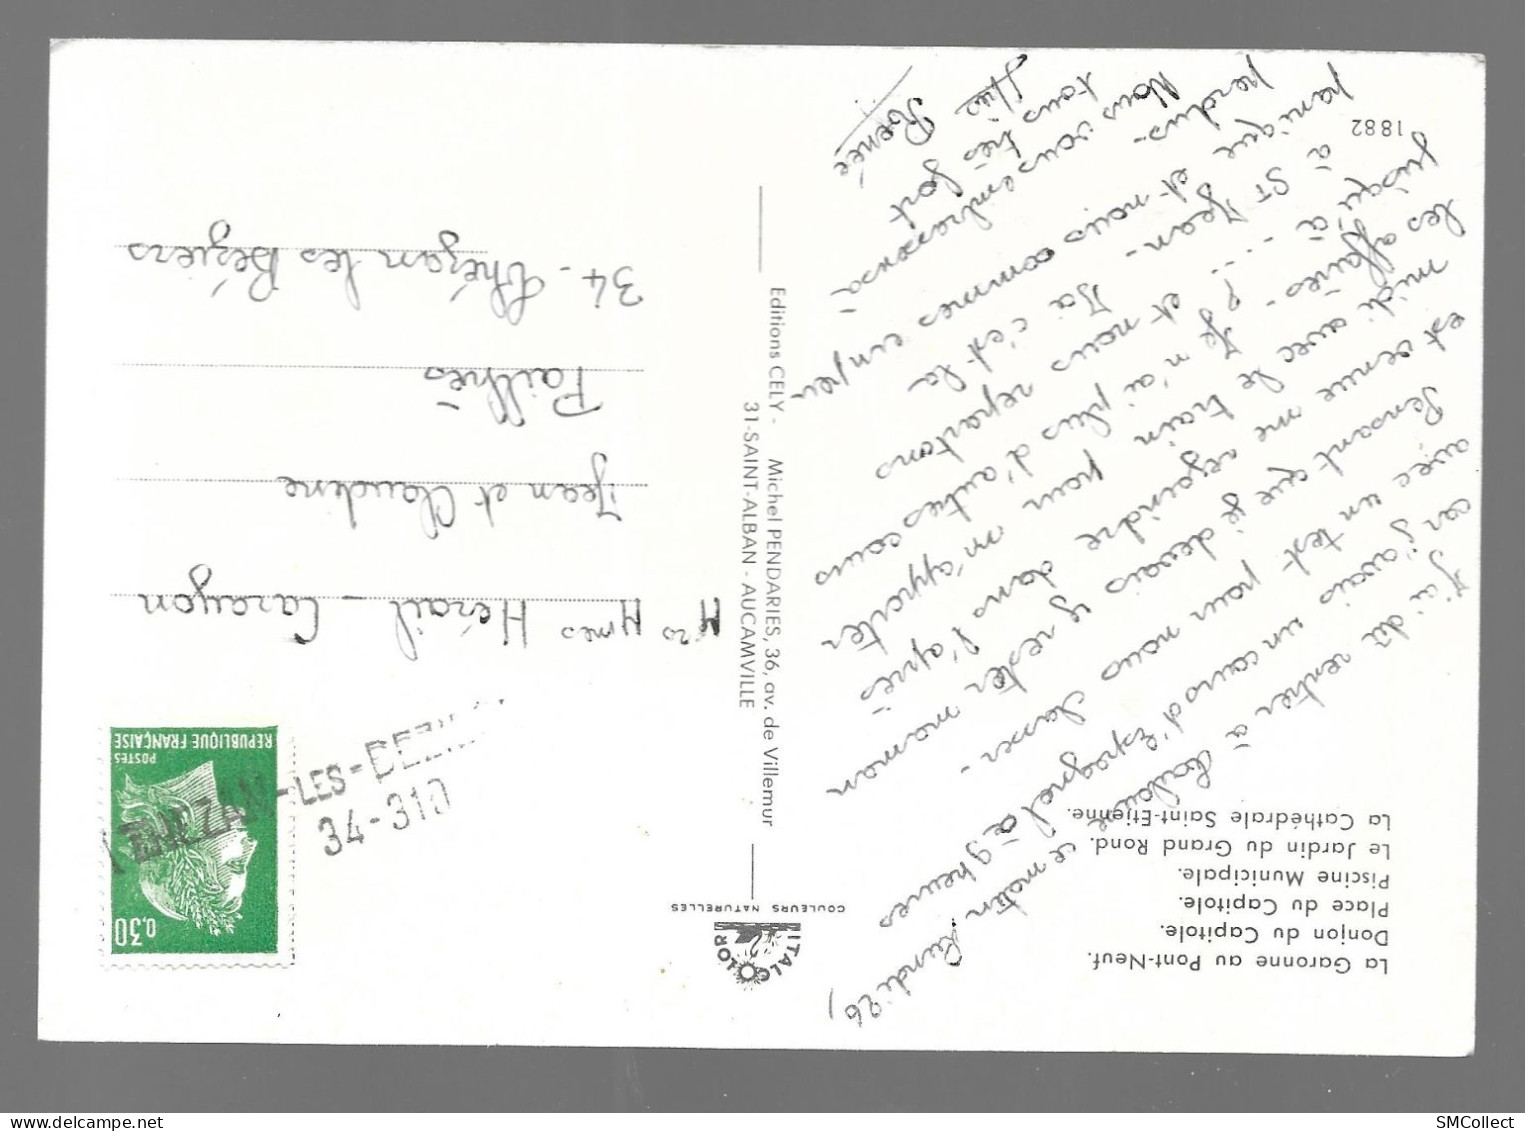 La Garonne au Pont-Neuf.
Donjon du Capitole.
Place du Capitole.
Piscine Municipale.
Le Jardin du Grand Rond.
La Cathédrale Saint-Etienne.
J'ai dû rentrer à Toulouse ce matin lundi 26,
car j'avais un cours d'Espagnol à 9 heures
avec un test pour nous classer -
Pensant que je devais y rester maman
est venue me rejoindre dans l'après
midi avec le train pour m'apporter
les affaires - Je n'ai plus d'autres cours
jusqu'à .... ? et nous repartons
à St Jean - Ici c'est la
panique et nous sommes un peu
perdus -
Nous vous embrassons
tous très fort
Renée
1882
ITALCOLOR
COULEURS NATURELLES
Editions CELY - Michel PENDARIES, 36, av. de Villemur
31-SAINT-ALBAN - AUCAMVILLE
0,30
POSTES
REPUBLIQUE FRANÇAISE
THEZAN-LES-BEZIERS
34-310
Mrs Mmes Hérail - Carayon
Jean et Claudine
Pailhès
34 - Thézan les Béziers
SMCollect